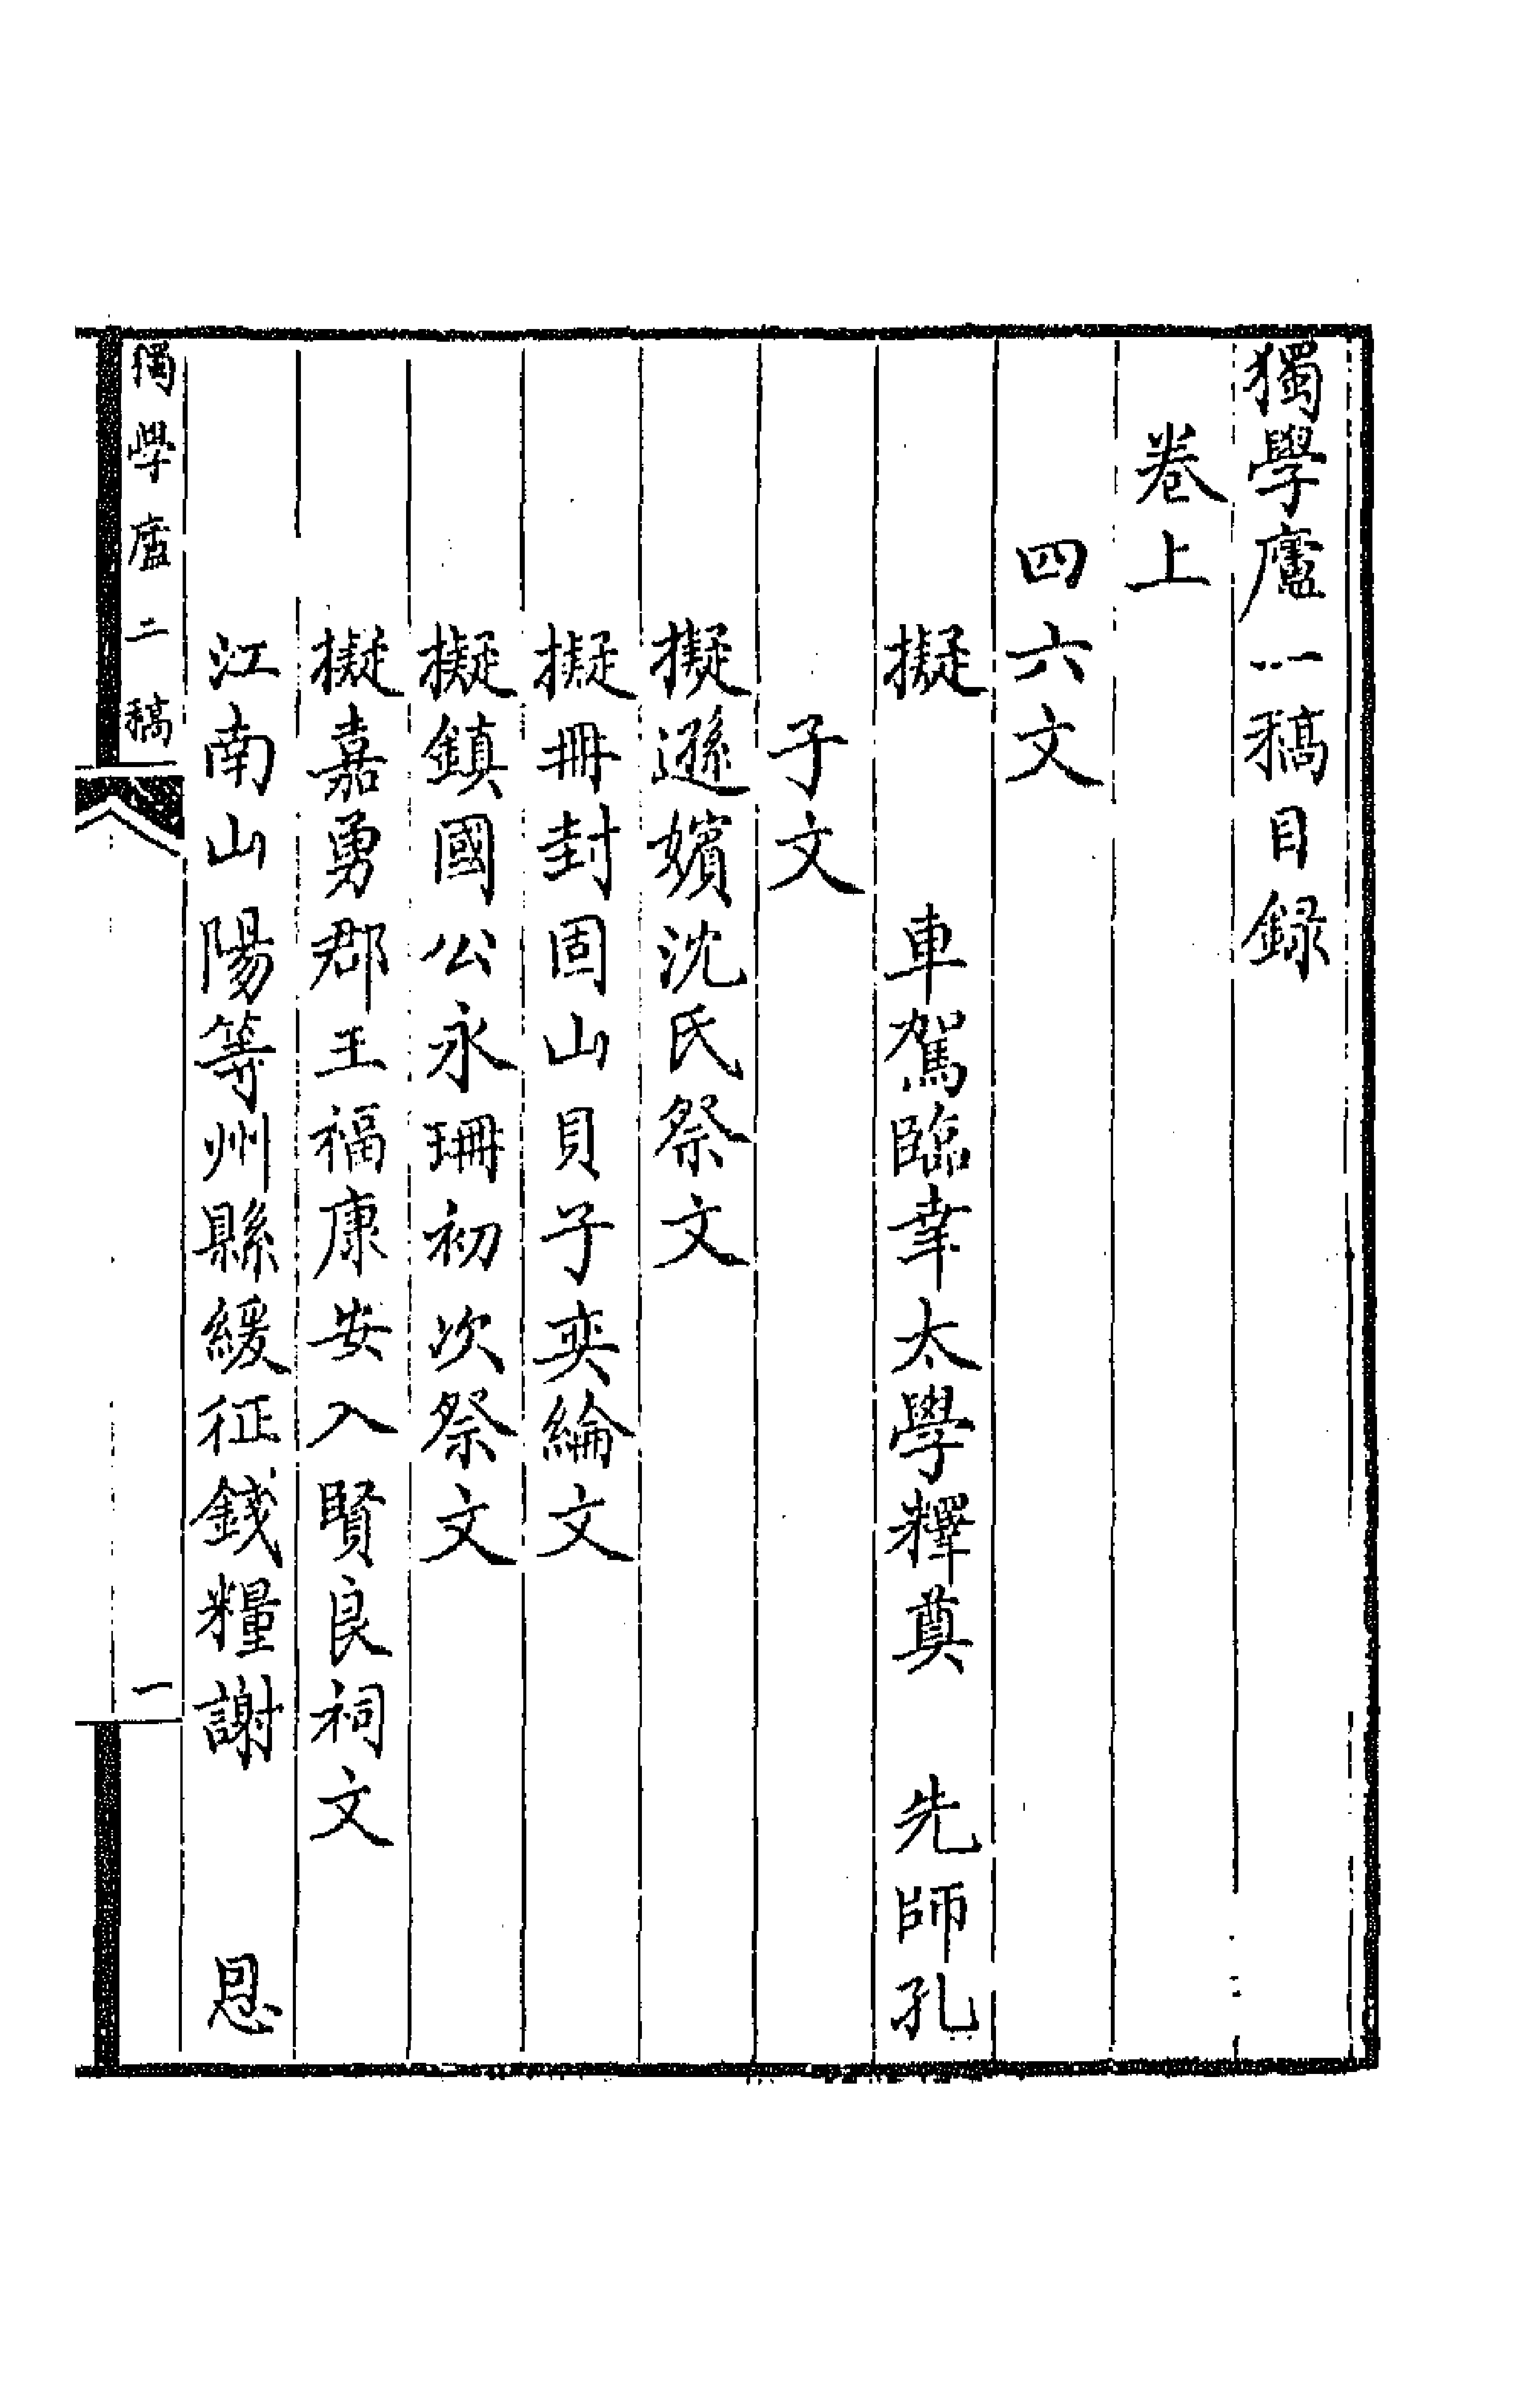 獨學廬二稿目録
卷上
四六文
擬　　車駕臨幸太學釋奠　先師孔
子文
擬遜嬪沈氏祭文
擬冊封固山貝子奕綸文
擬鎮國公永珊初次祭文
擬嘉勇郡王福康安入賢良祠文
江南山陽等州縣緩征錢糧謝　　恩
獨學廬二稿
一